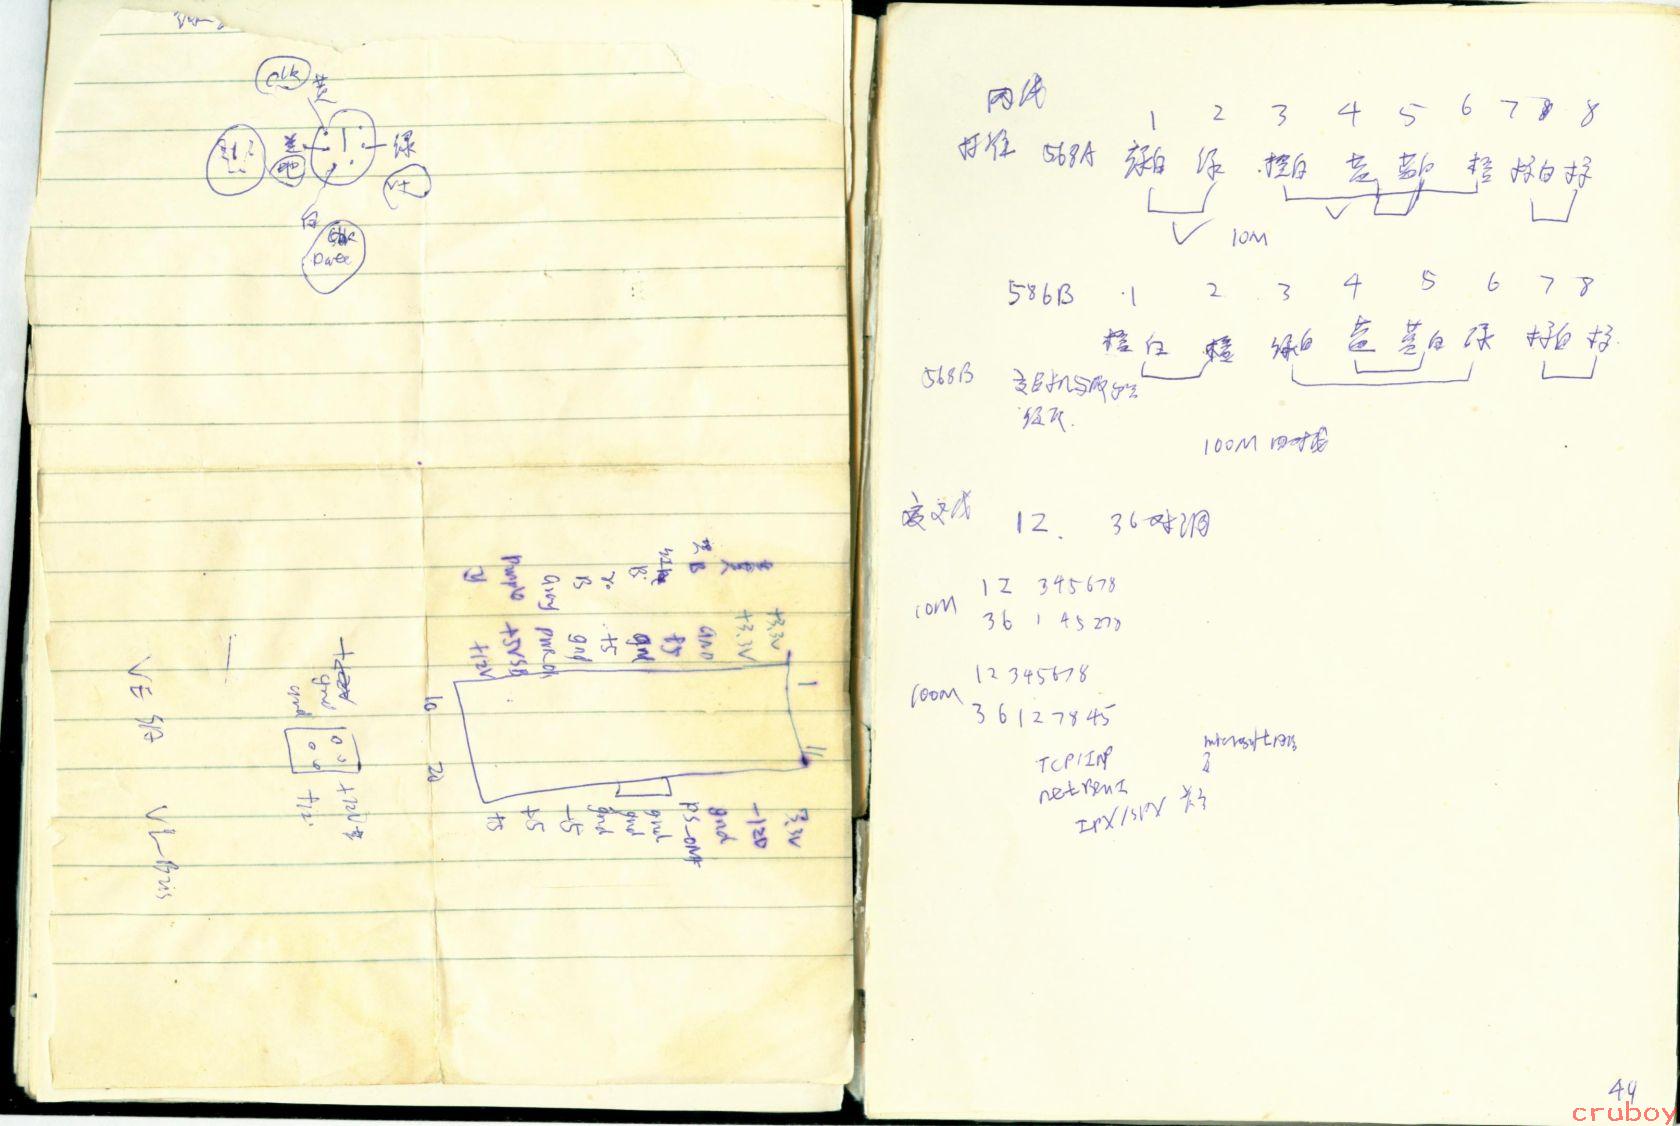 clk
黄
绿
+5
白
Data
+3.3V
+3.3V
gnd
+5
gnd
+5
gnd
pwr-ok
+5VSB
+12V
B
B
Gray
Purple
Y
1
11
10
20
3.3V
-12V
gnd
PS-ON#
gnd
gnd
gnd
-5
+5
+5
gnd
gnd
+12V
+12
VESA
VL-Bus
网线
标准 568A
1 2 3 4 5 6 7 8
绿白 绿 橙白 蓝 蓝白 橙 棕白 棕
10M
586B
1 2 3 4 5 6 7 8
橙白 橙 绿白 蓝 蓝白 绿 棕白 棕
568B
级联
100M 四对线
交叉线 12. 36对调
10M
12 345678
36 1 45278
100M
12345678
36127845
TCP/IP
netBeuI
IPX/SPX
microsoft
44
cruboy